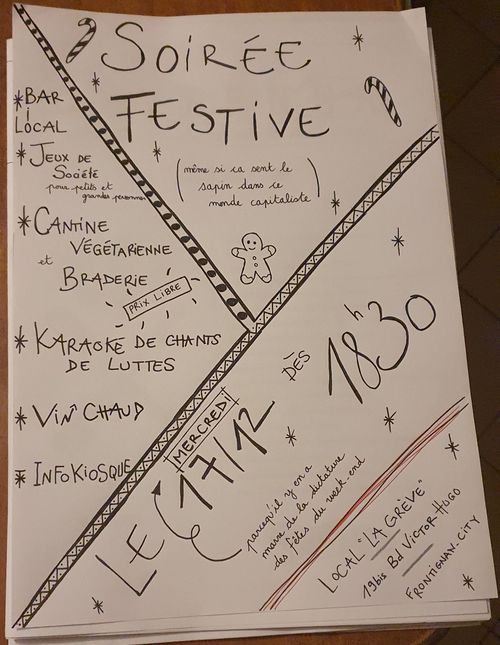 SOIRÉE
FESTIVE
(même si ca sent le
sapin dans ce
monde capitaliste)
* BAR
LOCAL
* JEUX DE
SOCIÉTÉ
pour petits et
grandes personnes
* CANTINE
VÉGÉTARIENNE
et
BRADERIE
PRIX LIBRE
* KARAOKÉ DE CHANTS
DE LUTTES
* VIN CHAUD
* INFOKIOSQUE
LE MERCREDI 17/12
DÈS 18h30
parcequ'il y en a
marre de la dictature
des fêtes du week-end
LOCAL "LA GRÈVE"
19bis Bd VICTOR HUGO
FRONTIGNAN-CITY